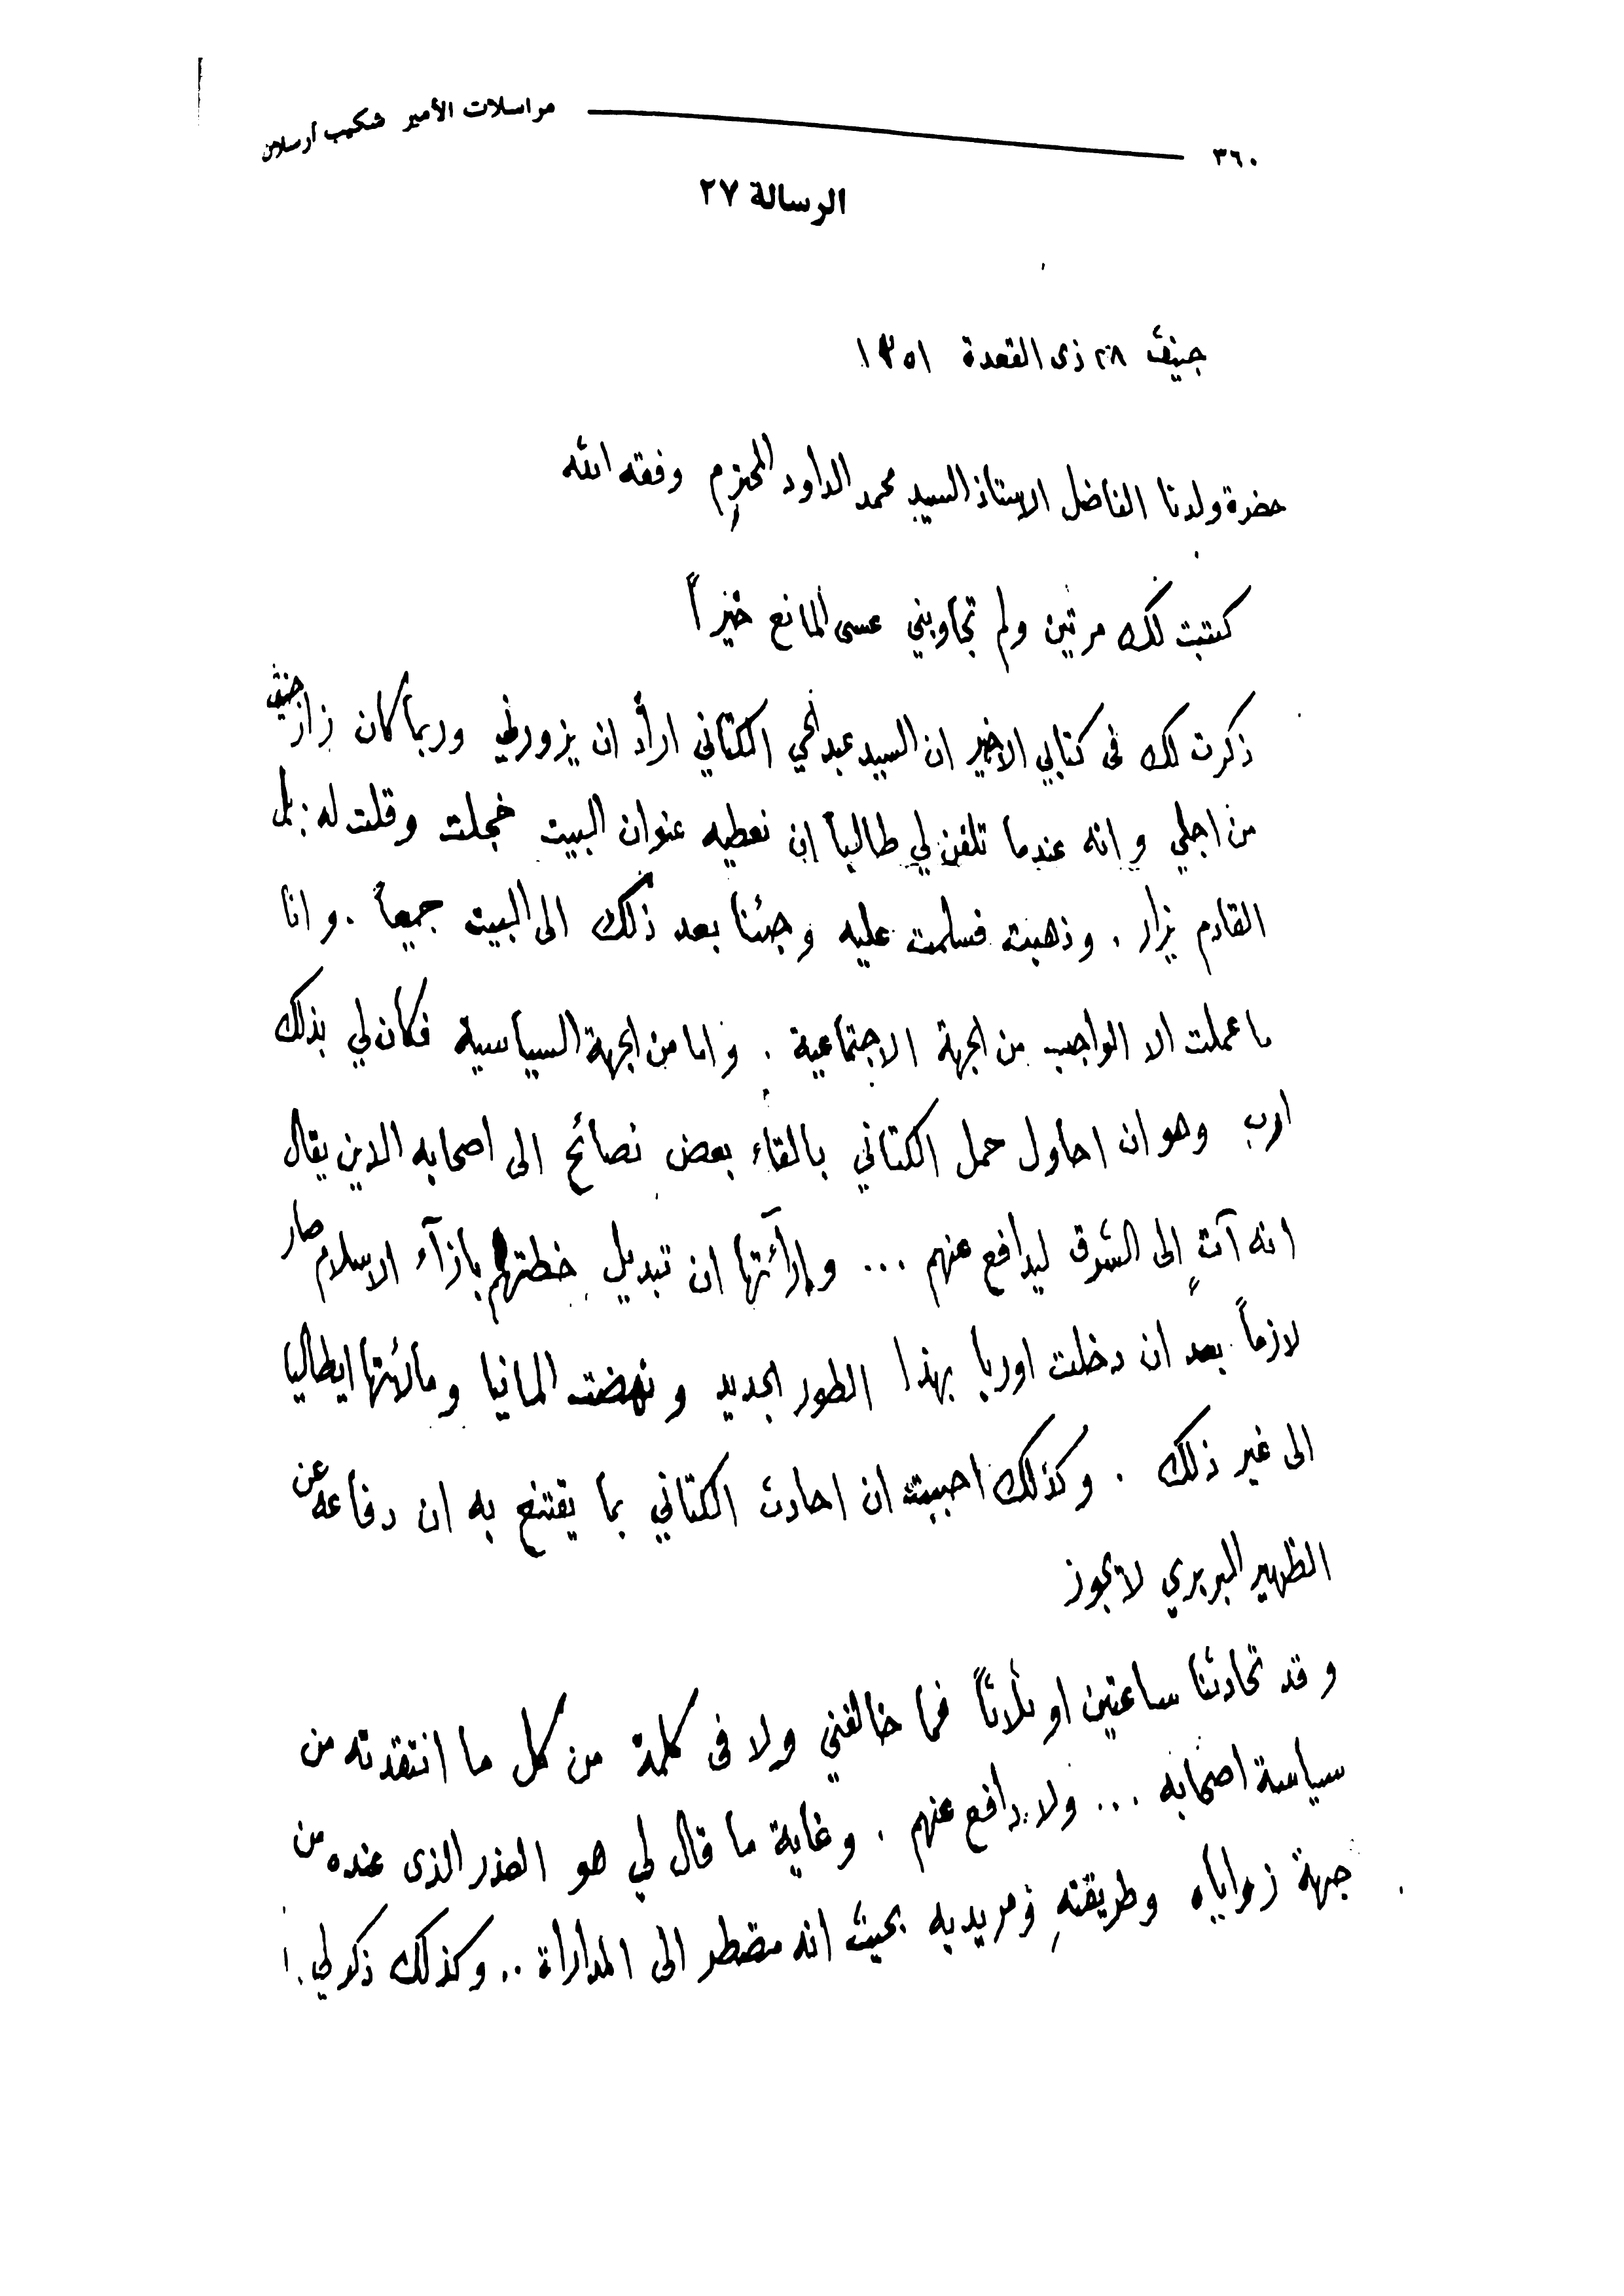 ٣٦٠ مراسلات الأمير شكيب أرسلان
الرسالة ٢٧
جنيف ٢٨ ذى القعدة ١٣٥١
حضرة ولدنا الفاضل الاستاذ السيد محمد الداود المحترم وفقه الله
كتبت لك مرتين ولم تجاوبني عسى المانع خيراً
ذكرت لك فى كتابي الاخير ان السيد عبد الحي الكتاني اراد ان يزورني وربما كان زار جنيف
من اجلي وانه عندما تلفن لي طالباً ان نعطيه عنوان البيت خجلت وقلت له: بل
القادم يزار . وذهبت فسلمت عليه وجئنا بعد ذلك الى البيت جميعاً . وانا
ما عملت الا الواجب من الجهة الاجتماعية . واما من الجهة السياسية فكان لي بذلك
ارب وهو ان احاول حمل الكتاني بالقاء بعض نصائح الى اصحابه الذين يقال
انه آتٍ الى الشرق ليدافع عنهم ... وإرآئتها ان تبديل خطتهم بازآء الاسلام صار
لازماً بعد ان دخلت اوربا بهذا الطور الجديد ونهضت المانيا ومالأتها ايطاليا
الى غير ذلك . وكذلك احببت ان احادث الكتاني بما يقتنع به ان دفاعه عن
الظهير البربري لا يجوز
وقد تحادثنا ساعتين او ثلاثاً فما خالفني ولا فى كلمة من كل ما انتقدته من
سياسة اصحابه ... ولا دافع عنهم . وغاية ما قال لي هو العذر الذى عنده من
جهة زواياه وطريقته ومريديه بحيث انه مضطر الى المداراة .. وكذلك ذكر لي